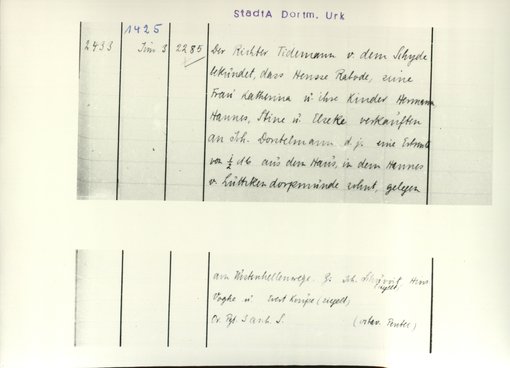 StadtA Dortm. Urk
1425
2433 Juni 3 2285 Der Richter Tidemann v. dem Schyde
bekundet, dass Hensse Rabode, seine
Frau Katherina u. ihre Kinder Hermann,
Hannes, Stine u. Elseke verkauften
an Joh. Dorstelmann d. j. eine Erbrente
von ½ M aus dem Haus, in dem Hannes
v. Lüttikendorpmünde wohnt, gelegen
am Westenhellenwege. Z: Joh. Hens
Vogke u. Evert (siegelt)
Or. Pgt. 3 anh. S.